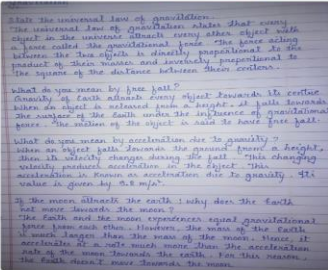 State the universal law of gravitation.
The universal law of gravitation states that every
object in the universe attracts every other object with
a force called the gravitational force. The force acting
between the two objects is directly proportional to the
product of their masses and inversely proportional to
the square of the distance between their centers.
What do you mean by free fall?
Gravity of Earth attracts every object towards its centre
when an object is released from a height, it falls towards
the surface of the Earth under the influence of gravitational
force. The motion of the object is said to have free fall.
What do you mean by acceleration due to gravity?
When an object falls towards the ground from a height,
then its velocity changes during the fall. This changing
velocity produces acceleration in the object. This
acceleration is known as acceleration due to gravity. Its
value is given by 9.8 m/s².
If the moon attracts the earth, why does the Earth
not move towards the moon?
The Earth and the moon experiences equal gravitational
force from each other. However, the mass of the Earth
is much larger than the mass of the moon. Hence it
accelerates at a rate much more than the acceleration
rate of the moon towards the earth. For this reason,
the Earth doesn't move towards the moon.